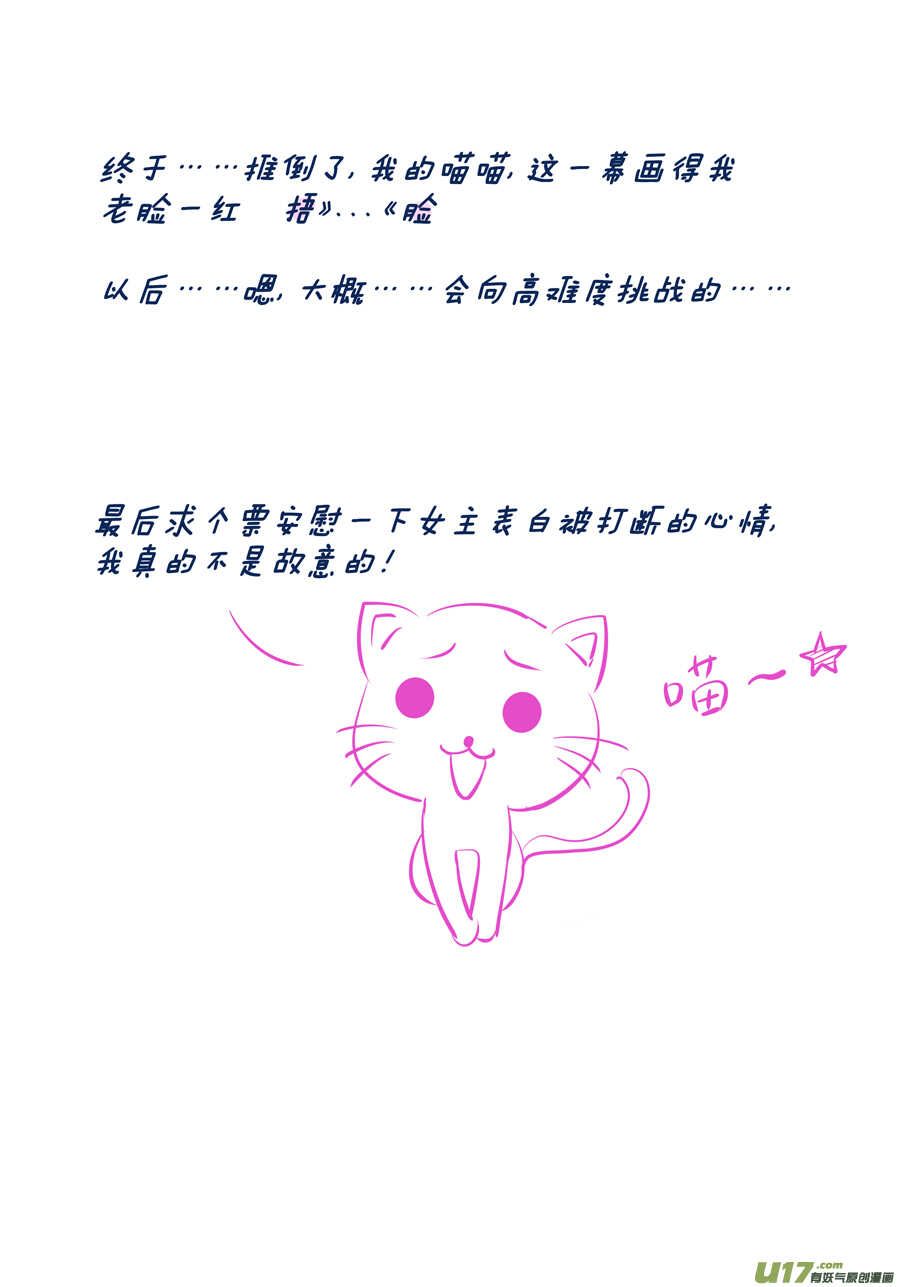 终于……推倒了,我的喵喵,这一幕画得我
老脸一红 捂》...《脸
以后……嗯,大概……会向高难度挑战的……
最后求个票安慰一下女主表白被打断的心情,
我真的不是故意的!
喵~☆
U17.com
有妖气原创漫画